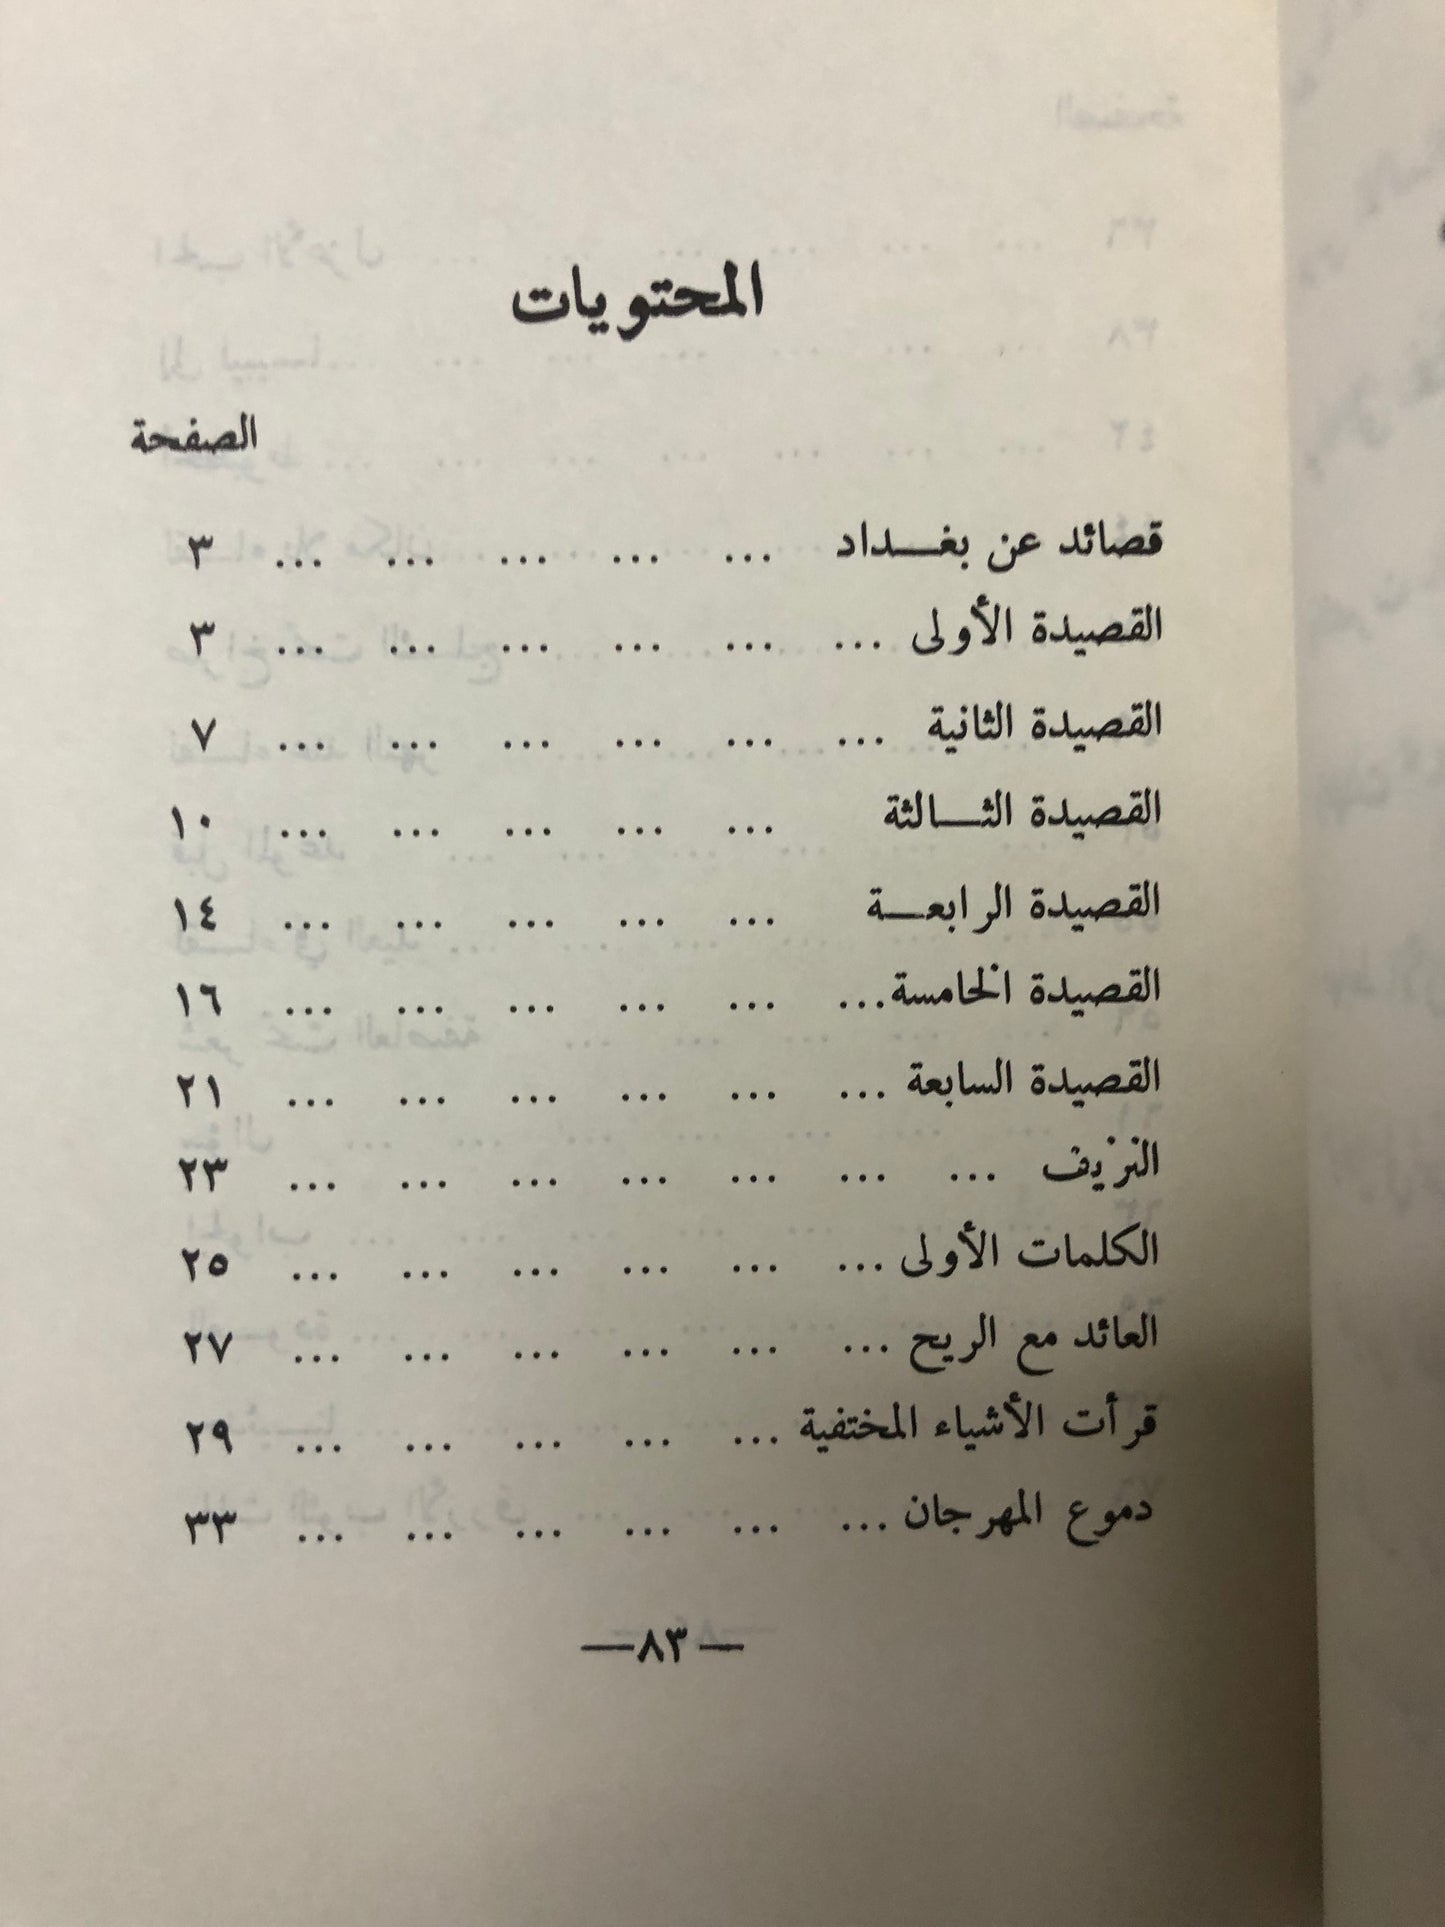 المحتويات
الصفحة
قصائد عن بغـــداد ... ... ... ... ... ٣
القصيدة الأولى ... ... ... ... ... ... ٣
القصيدة الثانية ... ... ... ... ... ... ٧
القصيدة الثـــالثة ... ... ... ... ... ١٠
القصيدة الرابعـــة ... ... ... ... ... ١٤
القصيدة الخامسة ... ... ... ... ... ... ١٦
القصيدة السابعة ... ... ... ... ... ... ٢١
النزيف ... ... ... ... ... ... ... ٢٣
الكلمات الأولى ... ... ... ... ... ... ٢٥
العائد مع الريح ... ... ... ... ... ... ٢٧
قرأت الأشياء المختفية ... ... ... ... ... ٢٩
دموع المهرجان ... ... ... ... ... ... ٣٣
— ٨٣ —